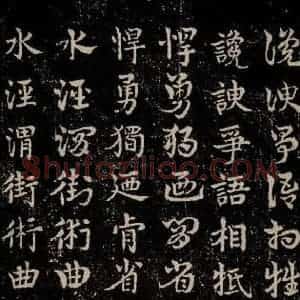 讒諛爭語相牴
讒諛爭語相牴
悍勇獨迺肯省
悍勇獨迺肯省
水涇渭街術曲
水涇渭街術曲
Shufaziliao.COM